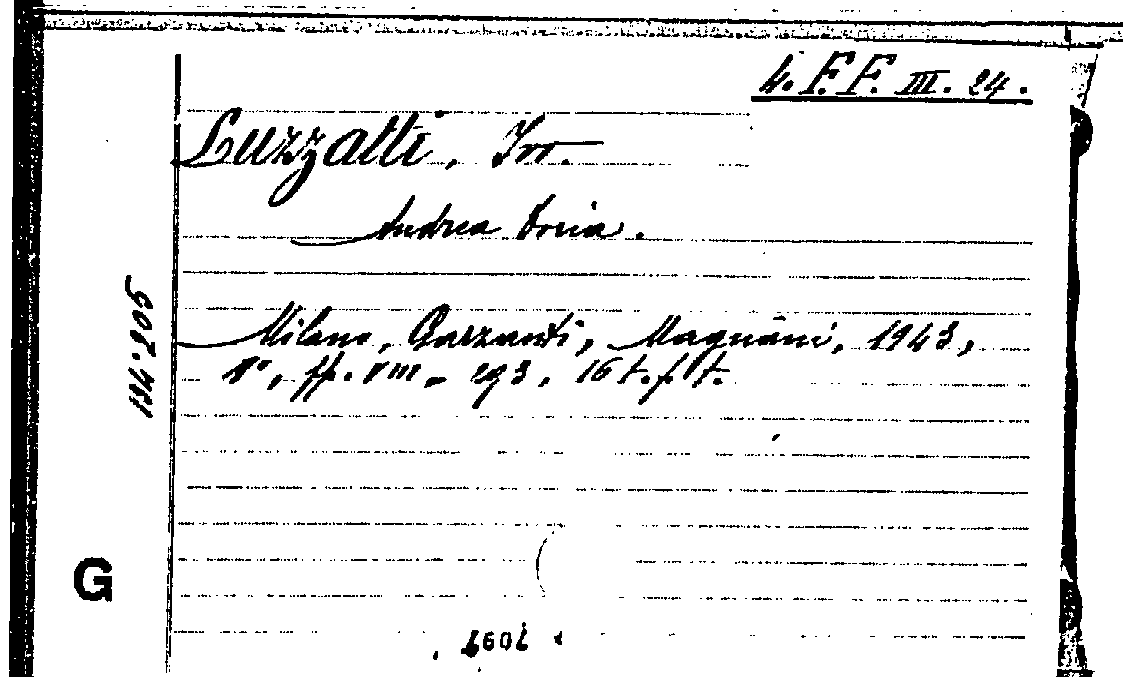 4. F. F. III. 24.
Luzzatti, Iv.
Andrea Doria.
Milano, Garzanti, Magnani, 1943,
8°, pp. VIII - 293, 16 t. f. t.
G